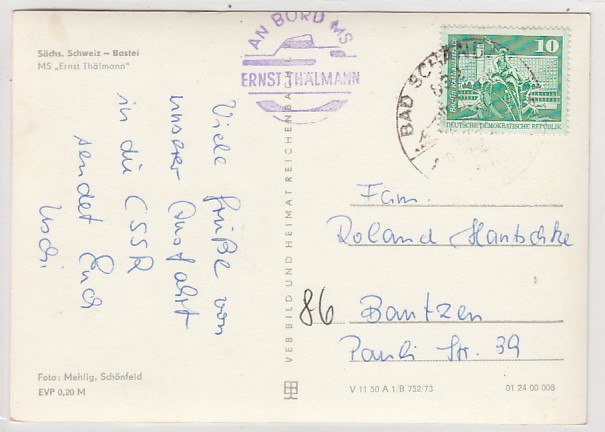 Sächs. Schweiz – Bastei
MS „Ernst Thälmann"
AN BORD MS
ERNST THÄLMANN
BAD SCHAN
10
DEUTSCHE DEMOKRATISCHE REPUBLIK
Viele Grüße von
unserer Ausfahrt
in die CSSR
sendet Euch
Uschi
VEB BILD UND HEIMAT REICHENBACH
Fam.
Roland Hantschke
86 Bautzen
Pauli Str. 39
Foto: Mehlig, Schönfeld
EVP 0,20 M
V 11 50 A 1/B 752/73
01 24 00 008